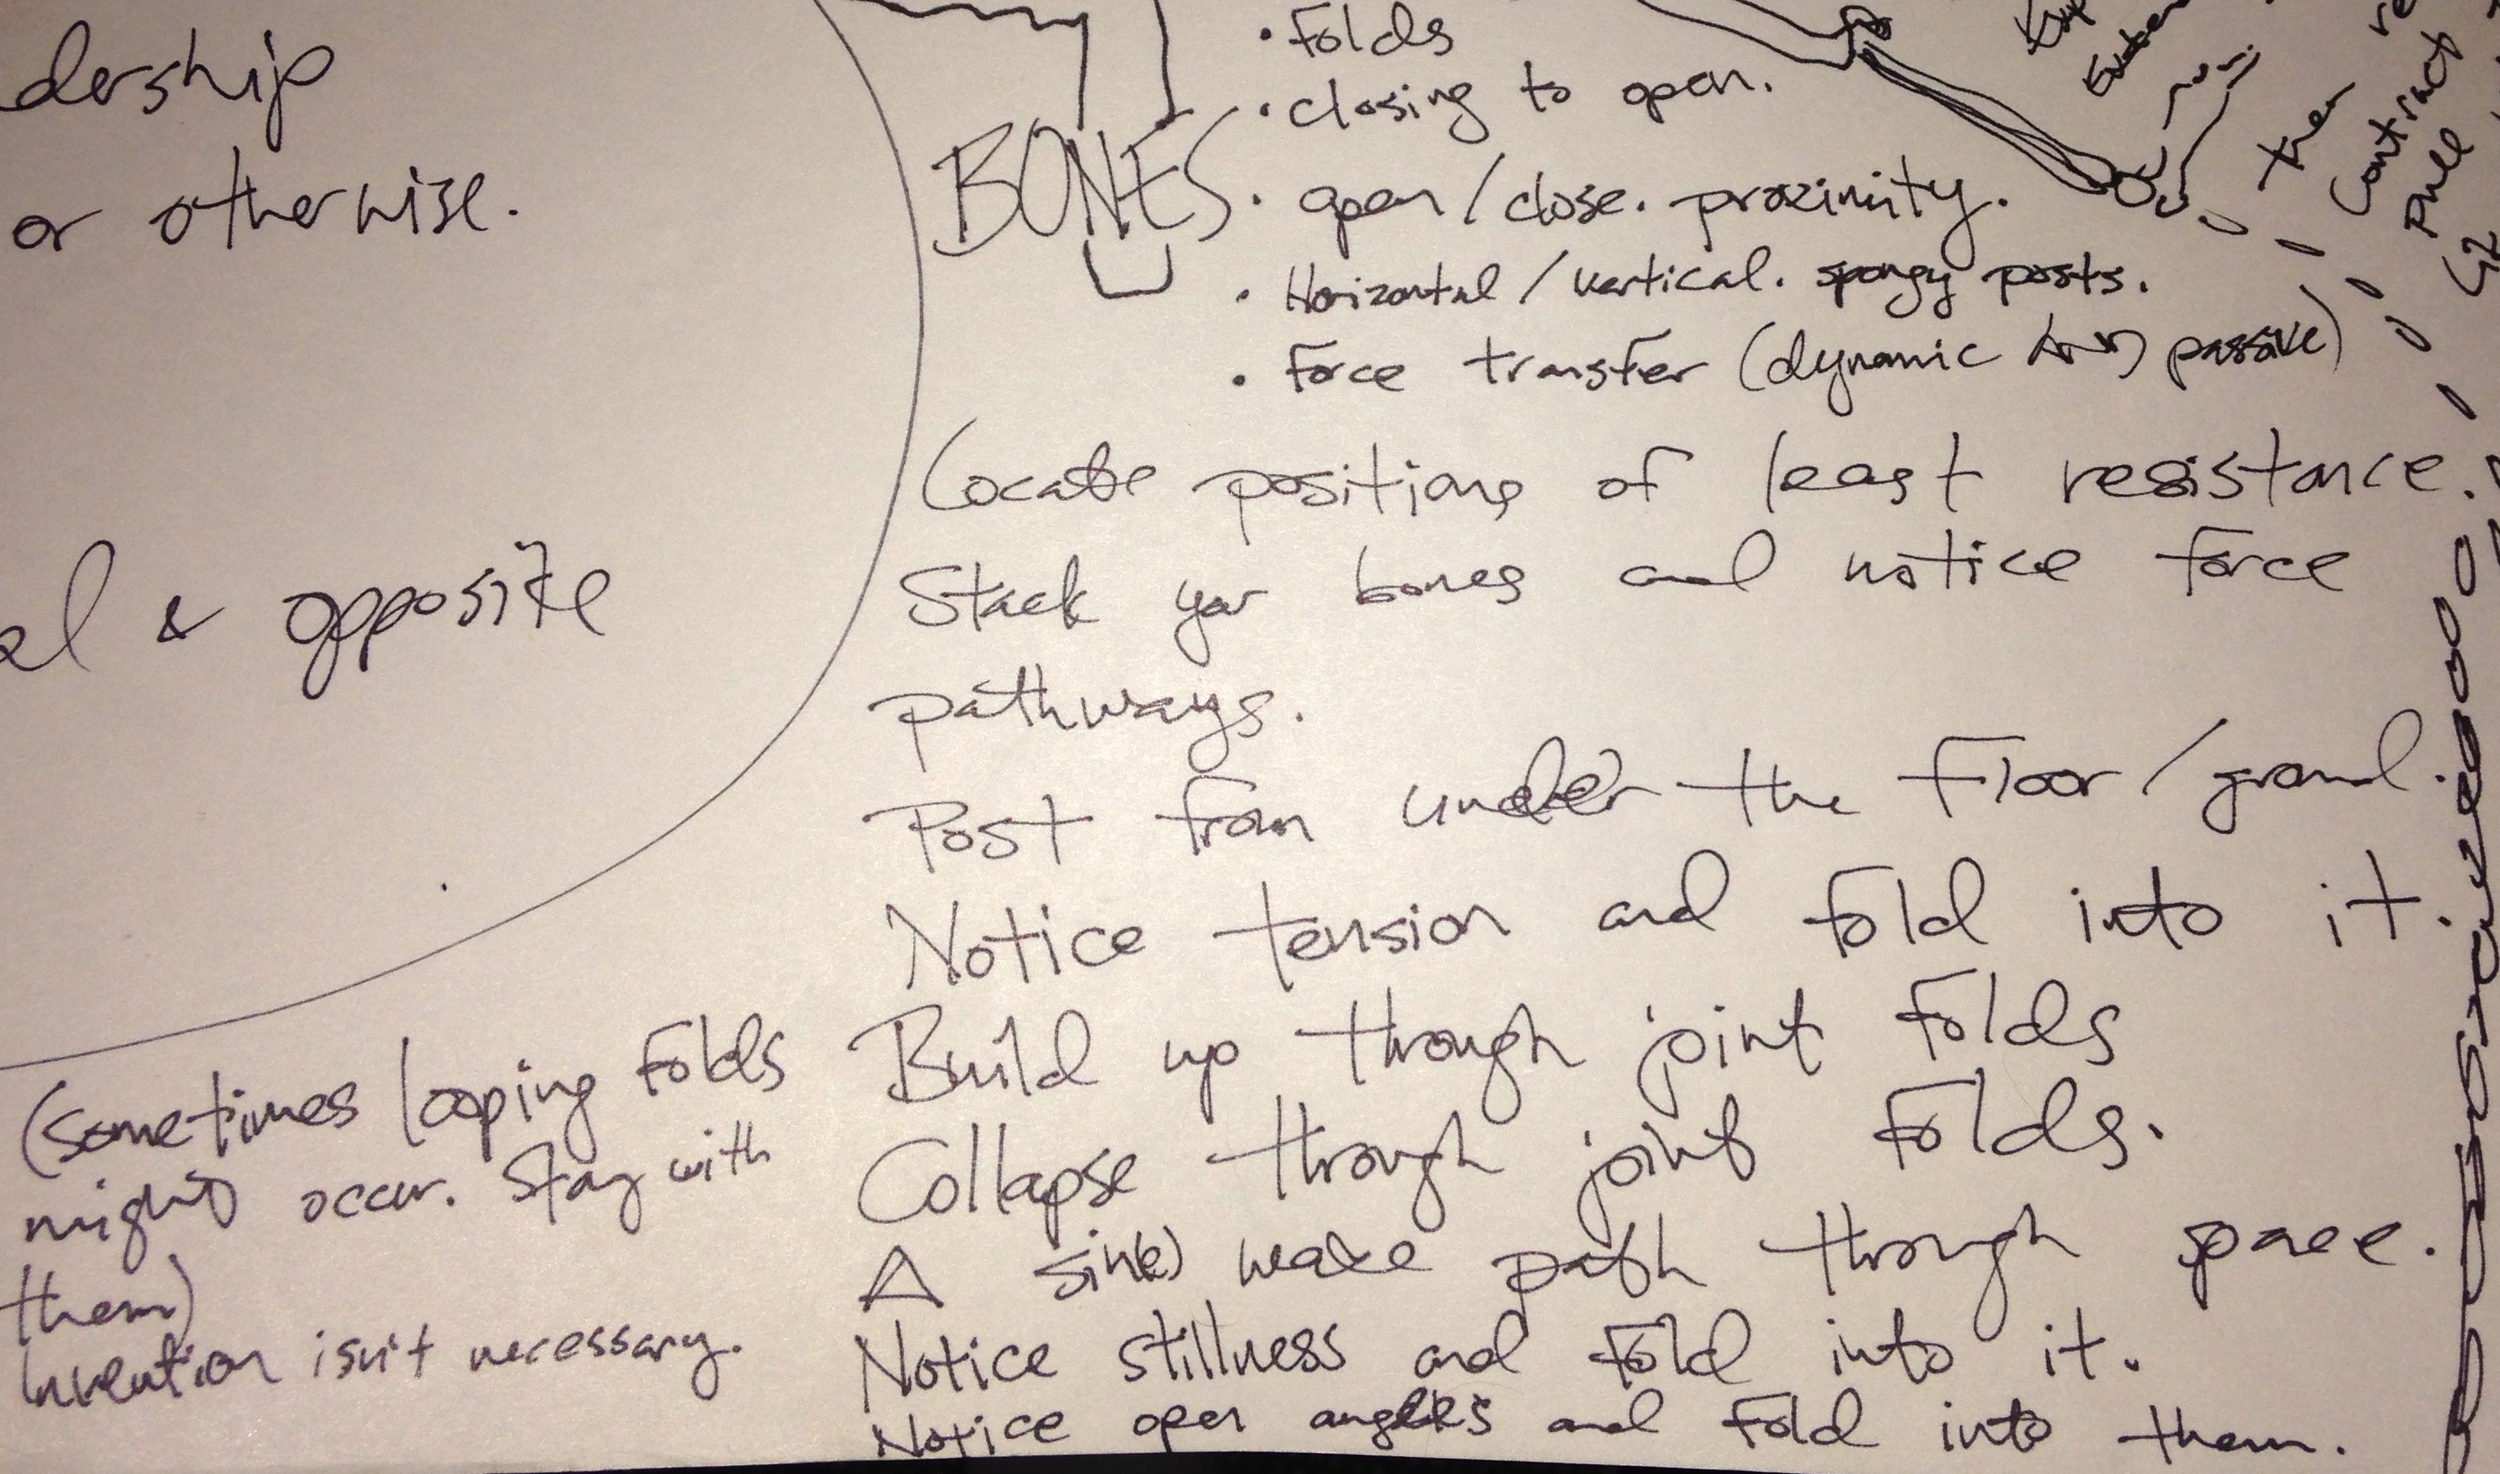 dership
or otherwise.
al & opposite
(sometimes looping Folds
might occur. Stay with
them)
Invention isn't necessary.
BONES
· Folds
· closing to open.
· open / close. proximity.
· Horizontal / vertical. spongy posts.
· Force transfer (dynamic AND passive)
Locate positions of least resistance.
Stack your bones and notice force
pathways.
Post from under the Floor / ground.
Notice tension and fold into it.
Build up through joint Folds
Collapse through joint Folds.
A sink) make path through space.
Notice stillness and fold into it.
Notice open angles and Fold into them.
then
contract
Pull